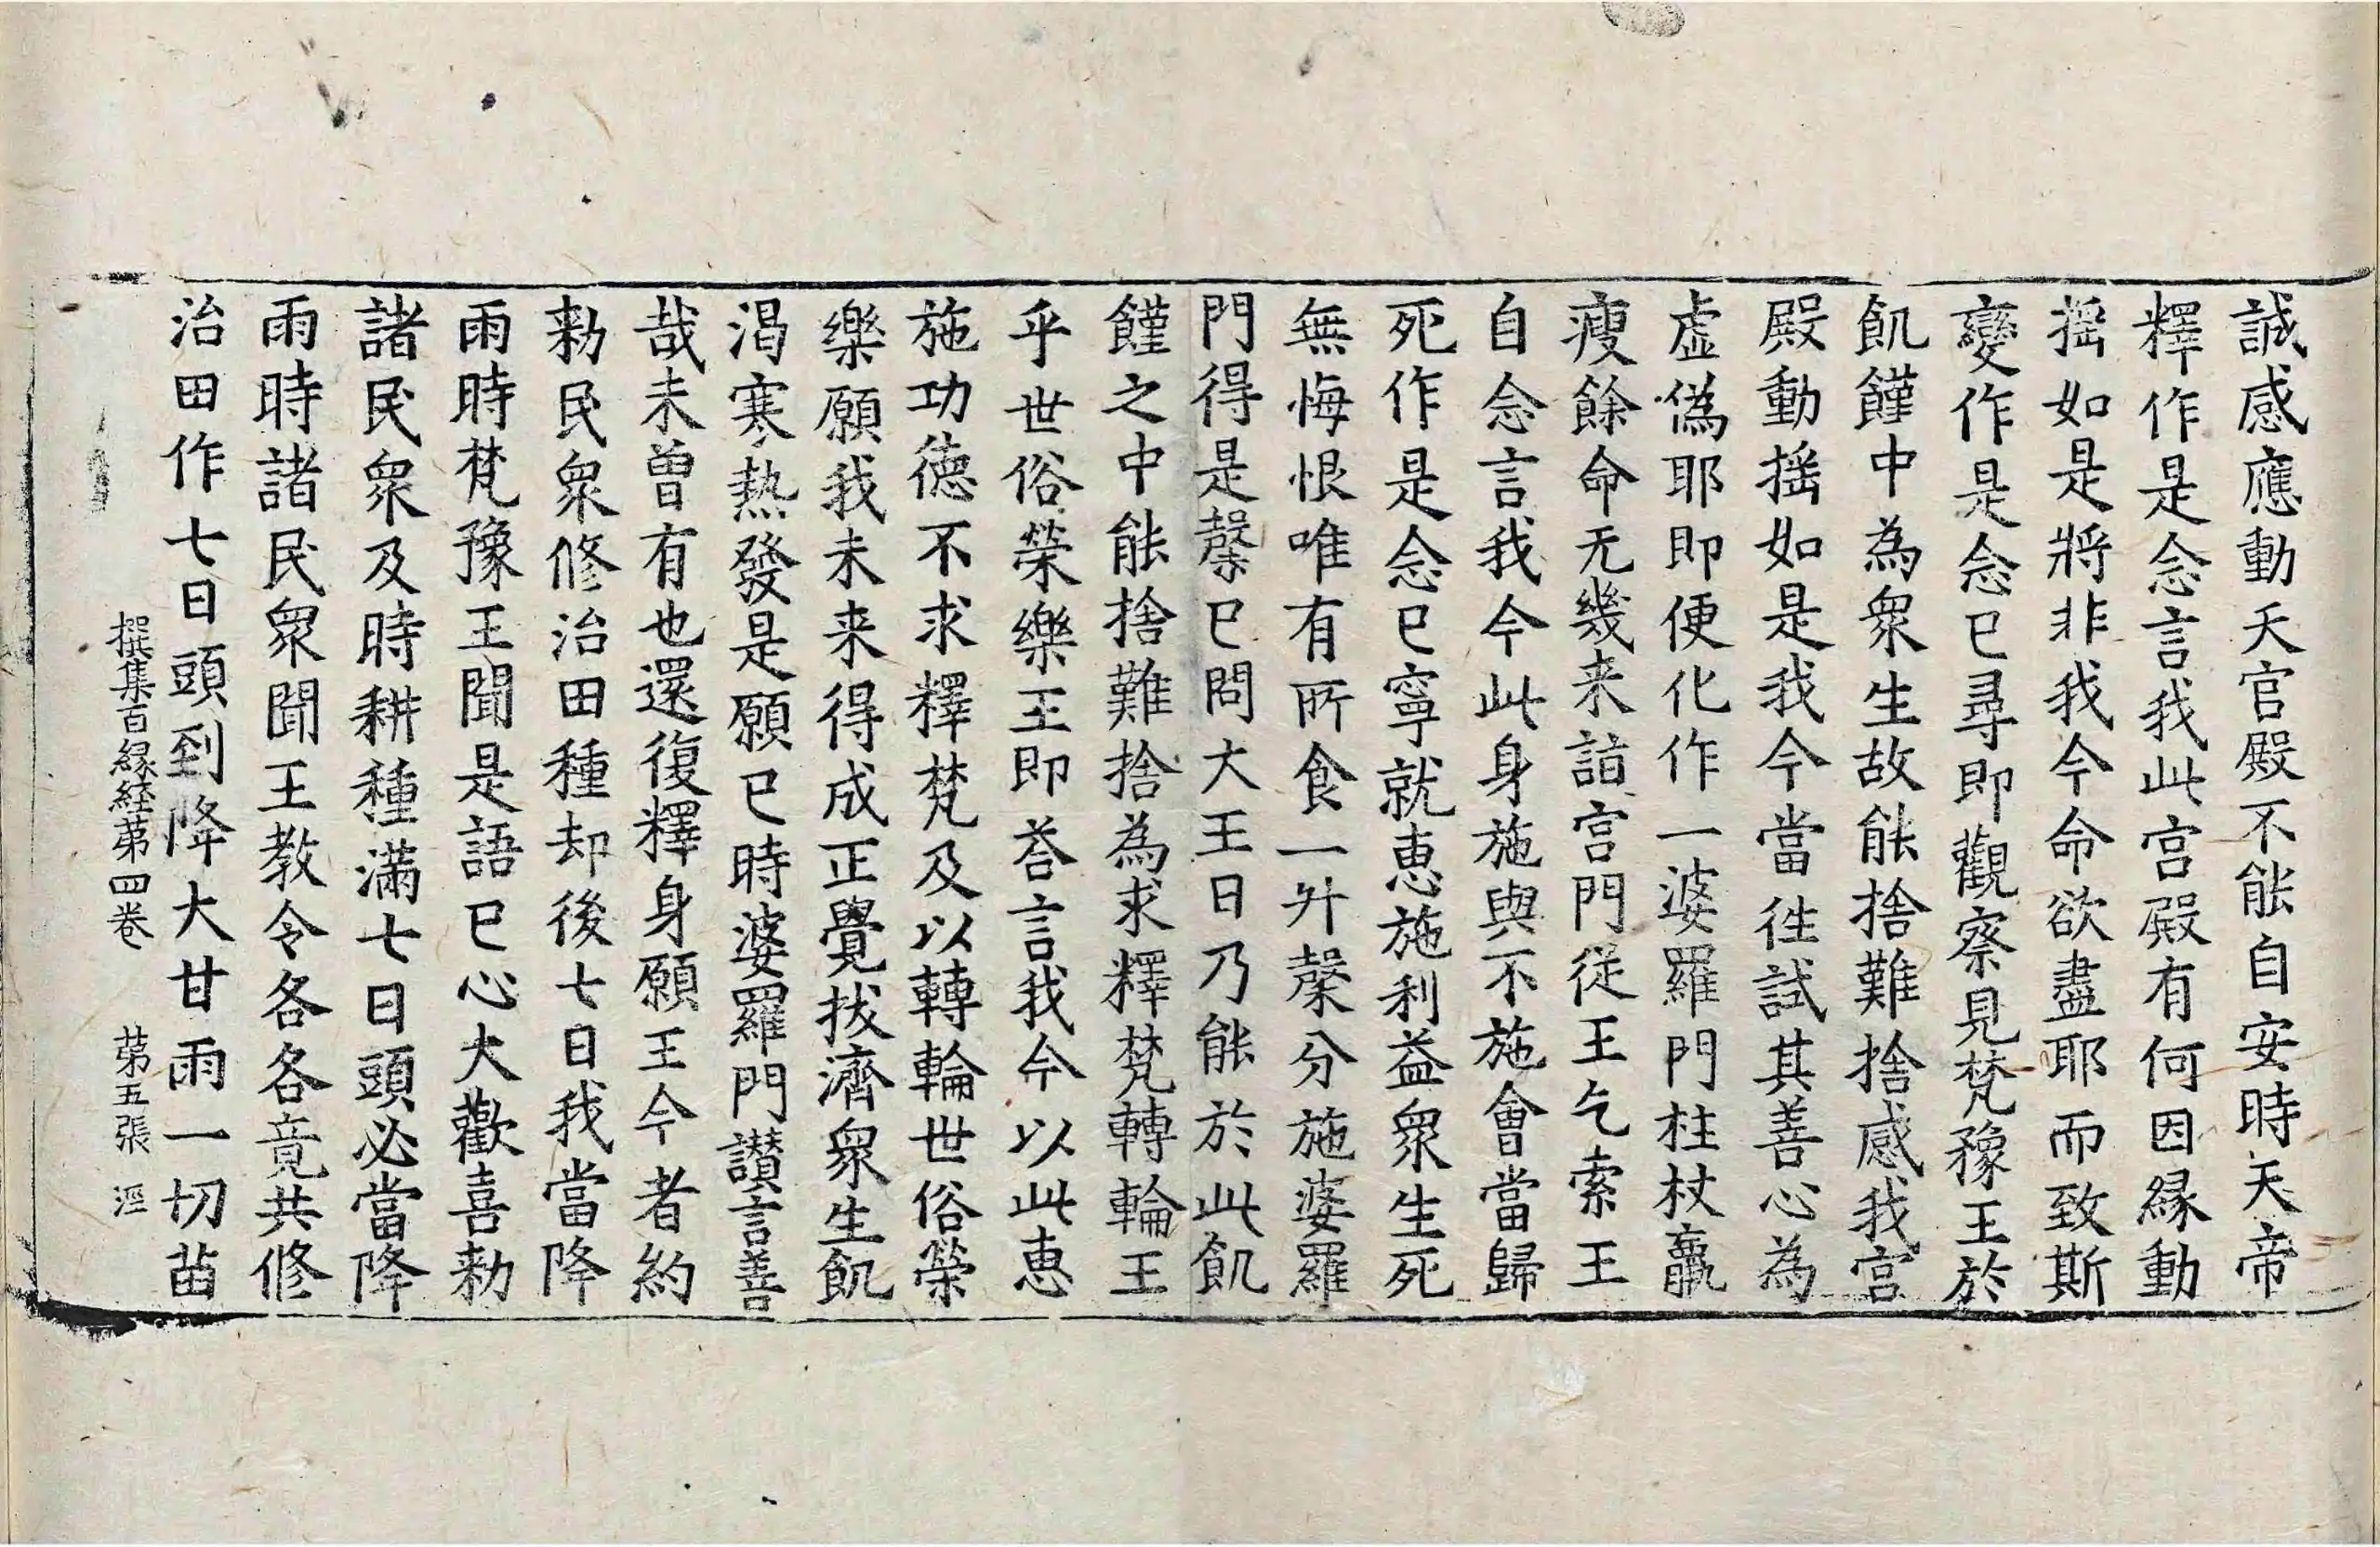 誠感應動天官殿不能自安時天帝
釋作是念言我此宮殿有何因緣動
揺如是將非我今命欲盡耶而致斯
變作是念已尋即觀察見梵豫王於
飢饉中為衆生故能捨難捨感我宮
殿動揺如是我今當往試其善心為
虛偽耶即便化作一婆羅門柱杖羸
瘦餘命无幾来詣宮門從王乞索王
自念言我今此身施與不施會當歸
死作是念已寧就惠施利益衆生死
無悔恨唯有所食一升糜分施婆羅
門得是糜已問大王曰乃能於此飢
饉之中能捨難捨為求釋梵轉輪王
乎世俗榮樂王即荅言我今以此惠
施功德不求釋梵及以轉輪世俗榮
樂願我未来得成正覺拔濟衆生飢
渴寒熱發是願已時婆羅門讃言善
哉未曾有也還復釋身願王今者約
勑民衆修治田種却後七日我當降
雨時梵豫王聞是語已心大歡喜勑
諸民衆及時耕種滿七日頭必當降
雨時諸民衆聞王教令各各竟共修
治田作七日頭到降大甘雨一切苗
撰集百緣経苐四卷 苐五張 涇